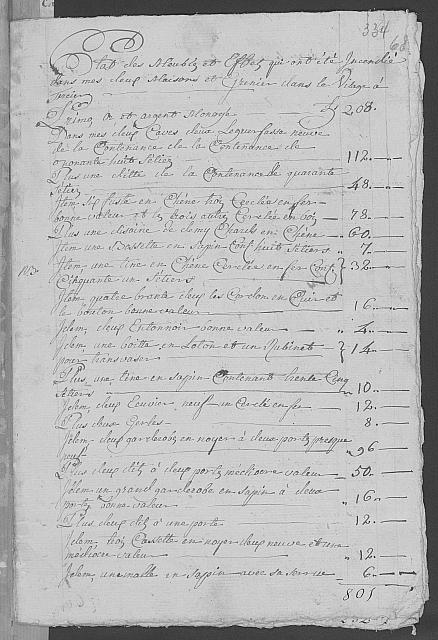 334
68
Etat des Meublez et Effet qui ont été Incendié
dans mes deux Maisons et Grenier dans le Vilage à
Primo or et argent Monoye 208.
Dans mes deux Caves deux Legrefasse neuve
de la Contenance de la Contenance de
oquante huit Sétier 112.
Plus une ditte de la Contenance de quarante
Sétier 48.
Item Six fuste en Chêne troy Cerclée en fer
bonne valeur et les trois autre Cerclée en boy 78.
Plus une disaine de demy Chard en Chêne 60.
Item une Bossette en Sapin Conf. huit Sétiers 7.
Item une tine en Chêne Cerclée en fer Conf.
Cinquante un Sétiers 32.
Item quatre brante deux les Cordon en Cuir et
le bouton bonne valeur 16.
Idem deux Entonnoir bonne valeur 4.
Idem une boitte en Loton et un Rubinet
pour transvaser 14.
Plus une tine en Sapin Contenant trente Cinq
Sétiers 10.
Idem deux Ecuvier neuf un Cerclé en fer 12.
Plus deux Gerles 8.
Idem deux garderobe en noyer à deux portes presque
neuf 96
Plus deux dits à deux portes médiocre valeur 50.
Idem un grand garderobe en Sapin à deux
portes bonne valeur 16.
Plus deux dits à une porte 12.
Idem troiz Cassette en noyer deux neuve et une
médiocre valeur 12.
Idem une malle en Sapin avec sa Serrue 6.
801